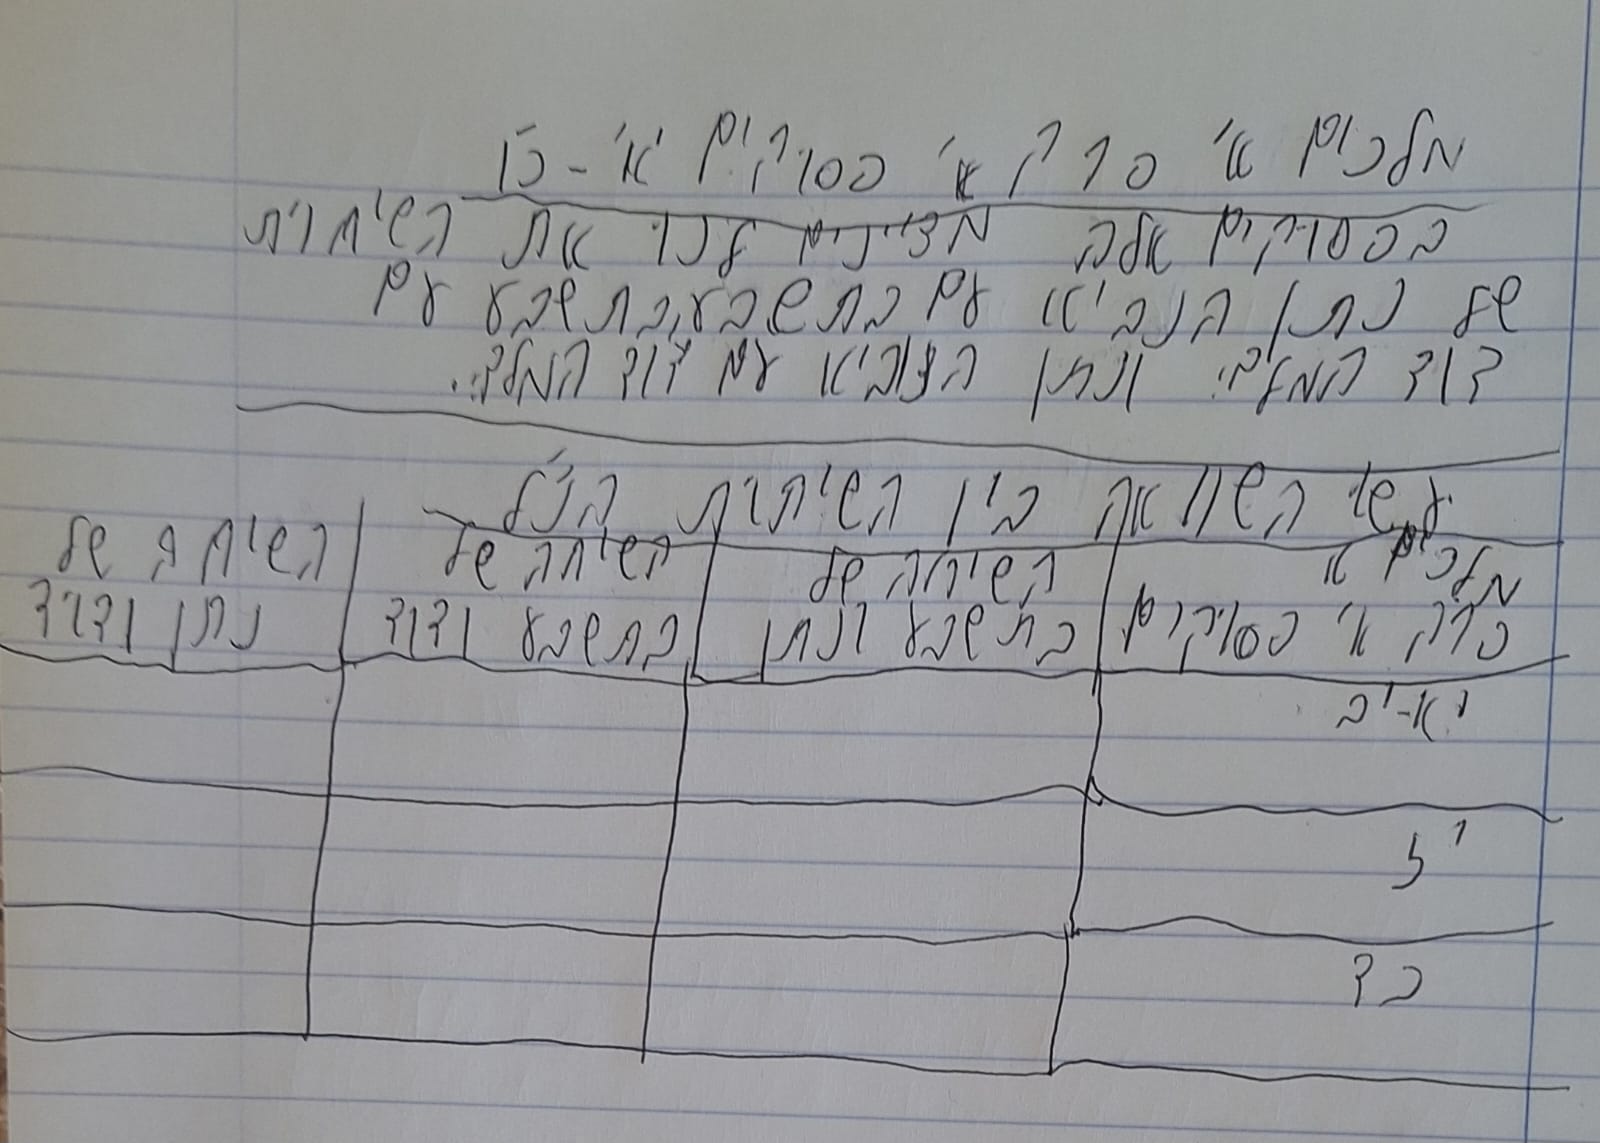 מלכים א' פרק א' פסוקים יא'-כז
בפסוקים אלה מציגים לנו את השיחות
של נתן הנביא עם בת שבע, בת שבע עם
דוד המלך. ונתן הנביא עם דוד המלך.
עשו השוואה בין השיחות הנ"ל
מלכים א פרק א' פסוקים | השיחה של בת שבע ונתן | השיחה של בת שבע ודוד | השיחה של נתן ודוד
יא-יב
יז
כד